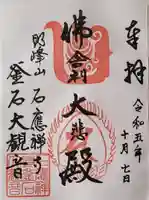 奉拝
令和五年
十月七日
佛舎利
大悲殿
明峰山
石應禅寺
釜石大観音